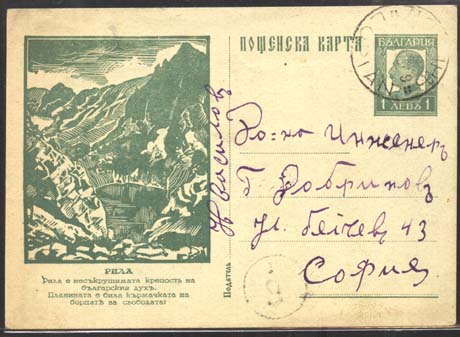 ПОЩЕНСКА КАРТА
БЪЛГАРИЯ
1 ЛЕВЪ 1
РИЛА
Рила е несъкрушимата крепость на
българския духъ.
Планината е била кърмачката на
борцитѣ за свободата!
Податель
Н Василовъ
Инженеръ
Г. Добриновъ
Ул. 43
София